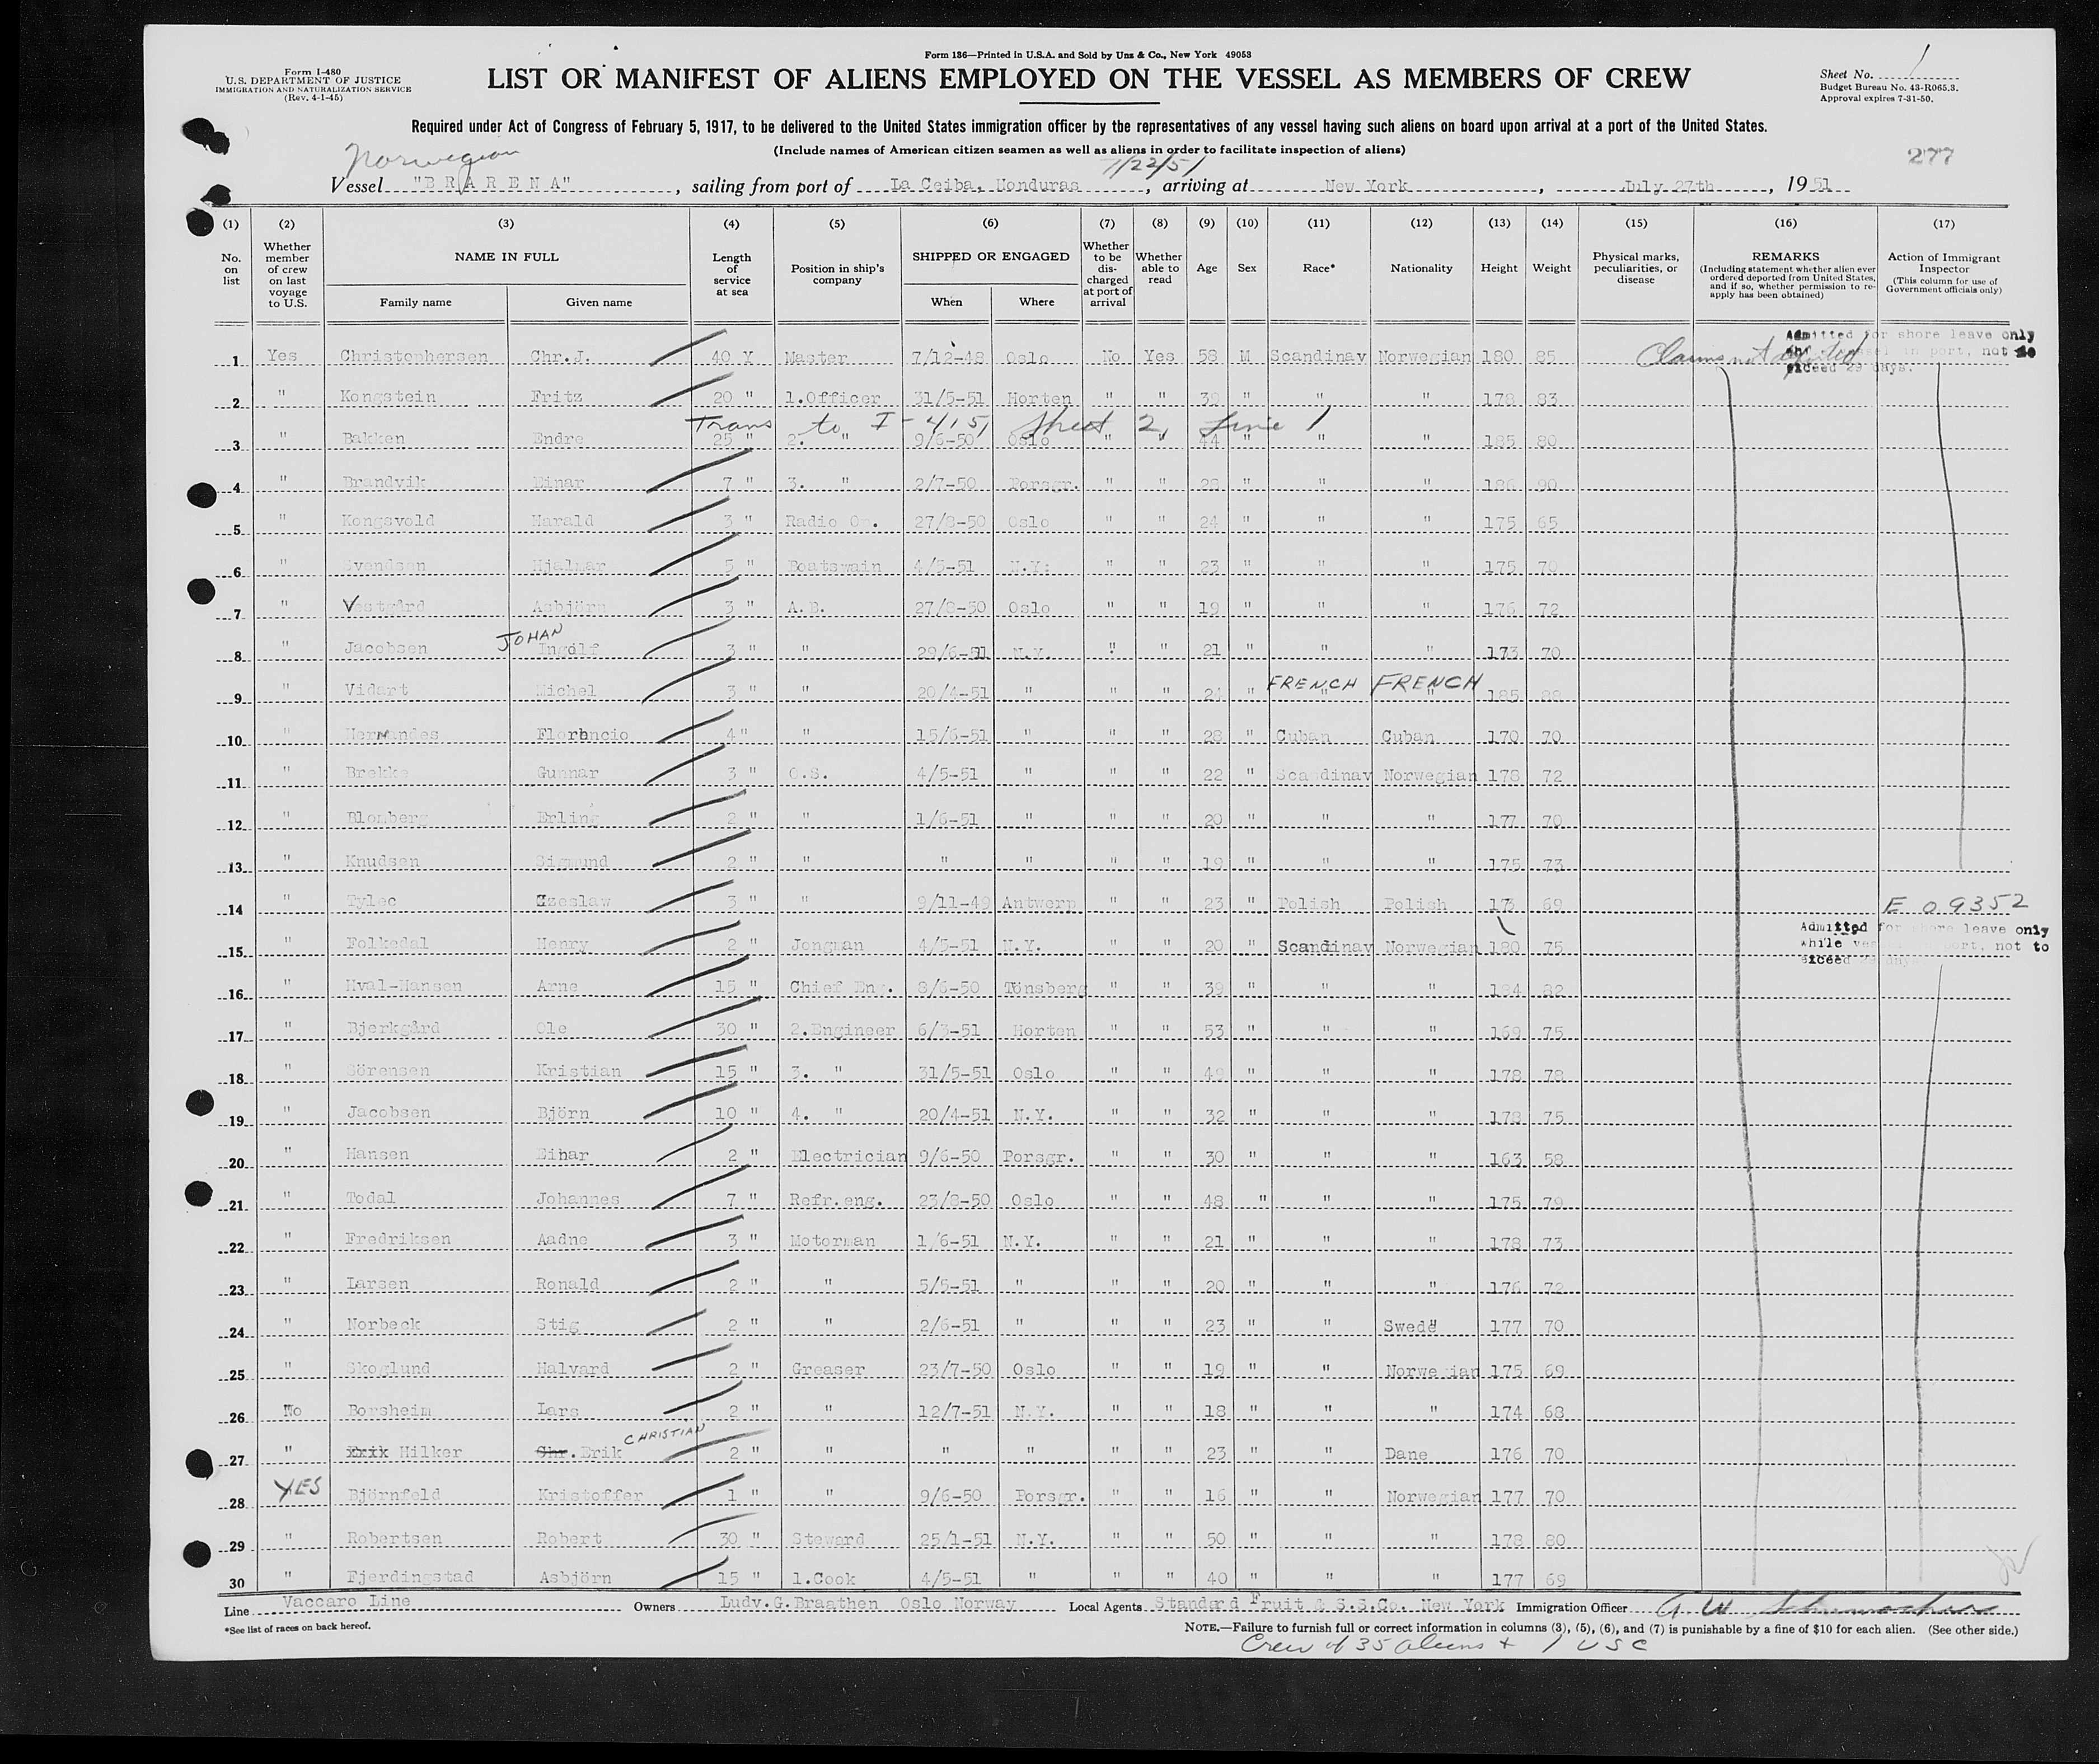 Form 136—Printed in U.S.A. and Sold by Unz & Co., New York 49053
Form I-480
U.S. DEPARTMENT OF JUSTICE
IMMIGRATION AND NATURALIZATION SERVICE
(Rev. 4-1-45)
LIST OR MANIFEST OF ALIENS EMPLOYED ON THE VESSEL AS MEMBERS OF CREW
Sheet No. 1
Budget Bureau No. 43-R065.3.
Approval expires 7-31-50.
Required under Act of Congress of February 5, 1917, to be delivered to the United States immigration officer by the representatives of any vessel having such aliens on board upon arrival at a port of the United States.
(Include names of American citizen seamen as well as aliens in order to facilitate inspection of aliens)
277
Norwegian 7/22/51
Vessel "BRARENA", sailing from port of La Ceiba, Honduras, arriving at New York, July 27th, 1951
(1) (2) (3) (4) (5) (6) (7) (8) (9) (10) (11) (12) (13) (14) (15) (16) (17)
No. on list
Whether member of crew on last voyage to U.S.
NAME IN FULL
Family name Given name
Length of service at sea
Position in ship's company
SHIPPED OR ENGAGED
When Where
Whether to be discharged at port of arrival
Whether able to read
Age Sex Race* Nationality Height Weight
Physical marks, peculiarities, or disease
REMARKS
(Including statement whether alien ever ordered deported from United States, and if so, whether permission to re-apply has been obtained)
Action of Immigrant Inspector
(This column for use of Government officials only)
1 Yes Christophersen Chr.J. 40 Y Master 7/12-48 Oslo No Yes 58 M Scandinav Norwegian 180 85 Claims not deported Admitted for shore leave only
in port, not to
exceed 29 days.
2 " Kongstein Fritz 20 " 1.Officer 31/5-51 Horten " " 39 " " " 178 83
Trans to I-415, Sheet 2, Line 1
3 " Bakken Endre 25 " 2. " 9/6-50 Oslo " " 44 " " " 185 80
4 " Brandvik Einar 7 " 3. " 2/7-50 Porsgr. " " 28 " " " 186 90
5 " Kongsvold Harald 3 " Radio Op. 27/8-50 Oslo " " 24 " " " 175 65
6 " Svendsen Hjalmar 5 " Boatswain 4/5-51 N.Y. " " 23 " " " 175 70
7 " Vestgård Asbjörn 3 " A.B. 27/8-50 Oslo " " 19 " " " 176 72
8 " Jacobsen JOHAN Ingolf 3 " " 29/6-51 N.Y. " " 21 " " " 173 70
9 " Vidart Michel 3 " " 20/4-51 " " " 24 " FRENCH FRENCH 185
10 " Hernandes Florencio 4 " " 15/6-51 " " " 28 " Cuban Cuban 170 70
11 " Brekke Gunnar 3 " O.S. 4/5-51 " " " 22 " Scandinav Norwegian 178 72
12 " Blomberg Erling 2 " " 1/6-51 " " " 20 " " " 177 70
13 " Knudsen Sigmund 2 " " " " " " 19 " " " 175 73
14 " Tylec Czeslaw 3 " " 9/11-49 Antwerp " " 23 " Polish Polish 173 69 E 09352
15 " Folkedal Henry 2 " Jongman 4/5-51 N.Y. " " 20 " Scandinav Norwegian 180 75 Admitted for shore leave only
while port, not to
exceed
16 " Hval-Hansen Arne 15 " Chief Eng. 8/6-50 Tönsberg " " 39 " " " 184 82
17 " Bjerkgård Ole 30 " 2.Engineer 6/3-51 Horten " " 53 " " " 169 75
18 " Sörensen Kristian 15 " 3. " 31/5-51 Oslo " " 49 " " " 178 78
19 " Jacobsen Björn 10 " 4. " 20/4-51 N.Y. " " 32 " " " 178 75
20 " Hansen Einar 2 " Electrician 9/6-50 Porsgr. " " 30 " " " 163 58
21 " Todal Johannes 7 " Refr.eng. 23/8-50 Oslo " " 48 " " " 175 79
22 " Fredriksen Aadne 3 " Motorman 1/6-51 N.Y. " " 21 " " " 178 73
23 " Larsen Ronald 2 " " 5/5-51 " " " 20 " " " 176 72
24 " Norbeck Stig 2 " " 2/6-51 " " " 23 " " Swede 177 70
25 " Skoglund Halvard 2 " Greaser 23/7-50 Oslo " " 19 " " Norwegian 175 69
26 No Borsheim Lars 2 " " 12/7-51 N.Y. " " 18 " " " 174 68
27 " Erik Hilker Chr. Erik CHRISTIAN 2 " " " " " " 23 " " Dane 176 70
28 YES Björnfeld Kristoffer 1 " " 9/6-50 Porsgr. " " 16 " " Norwegian 177 70
29 " Robertsen Robert 30 " Steward 25/1-51 N.Y. " " 50 " " " 178 80
30 " Fjerdingstad Asbjörn 15 " 1.Cook 4/5-51 " " " 40 " " " 177 69
Line Vaccaro Line Owners Ludv.G.Braathen Oslo Norway Local Agents Standard Fruit & S.S.Co. New York Immigration Officer G W Schumacher
*See list of races on back hereof.
NOTE.—Failure to furnish full or correct information in columns (3), (5), (6), and (7) is punishable by a fine of $10 for each alien. (See other side.)
Crew of 35 aliens + 1 USC